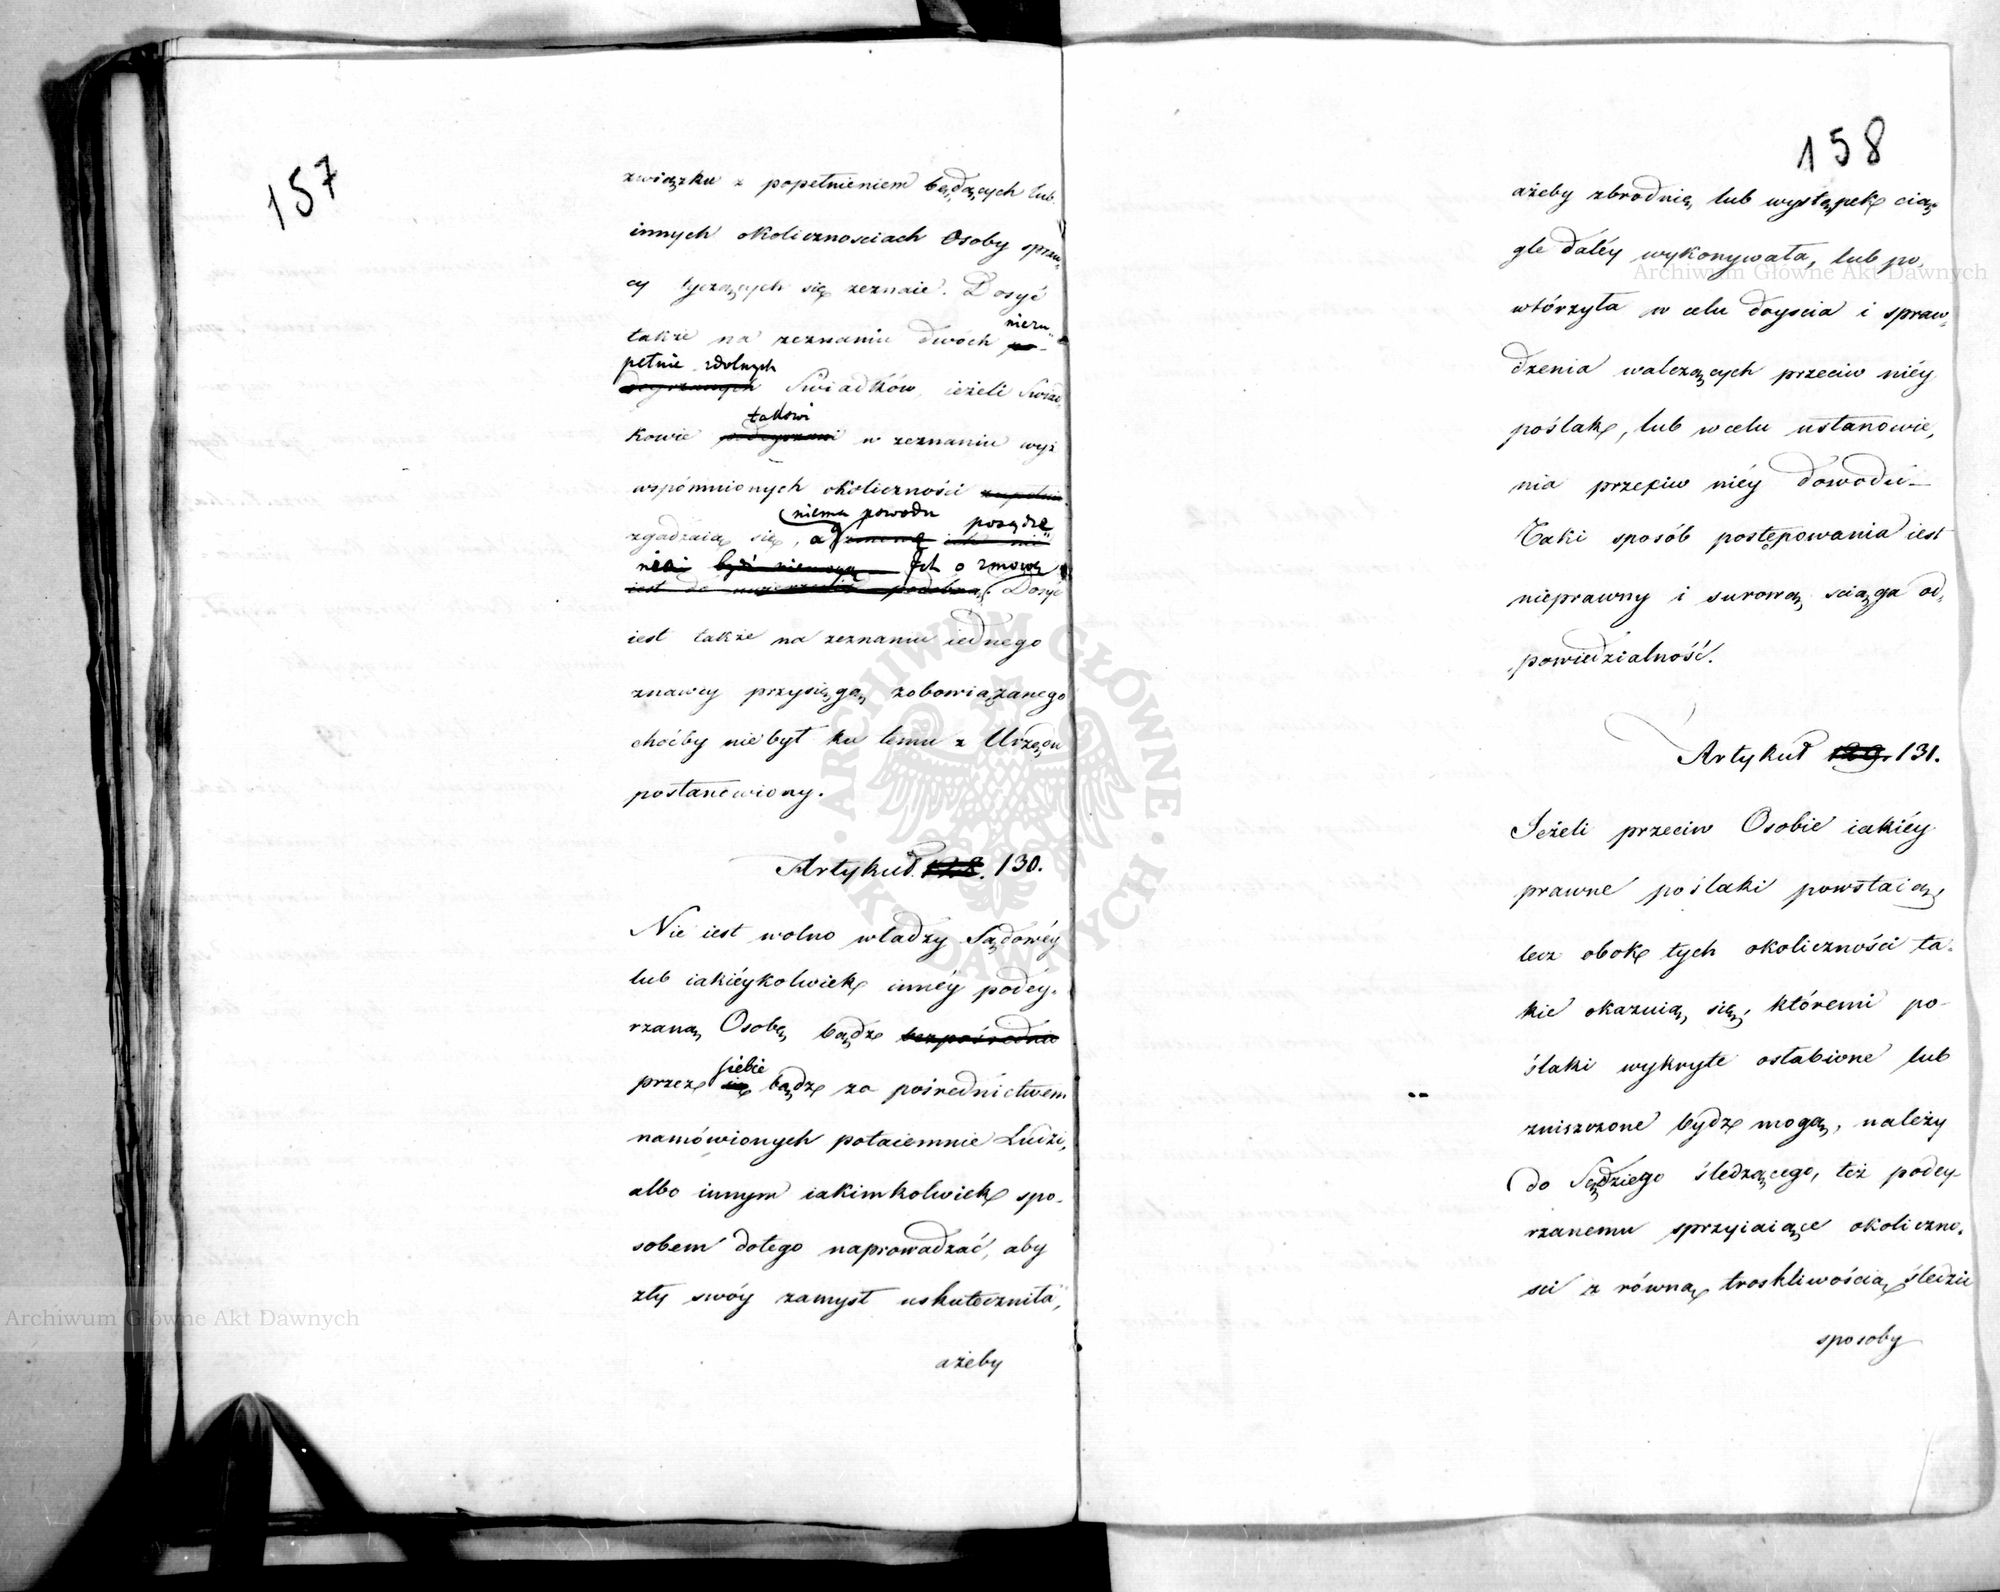 157
związku z popełnieniem będących lub
innych okolicznosciach Osoby spraw,
cy tyczących się zeznaie. Dosyć
niezu-
także na zeznaniu dwóch po-
pełnie zdolnych
deyrzanych Swiadków, ieżeli Swiad,
takowi
kowie podeyrzani w zeznaniu wyż
wspómnionych okoliczności zupełnie
niema powodu posądze
zgadzaią się, a zmową ich nie
nia być niemogą Jch o zmowę
iest do podobną. Dosyć
iest także na zeznaniu iednego
znawcy przysięgą zobowiązanego
choćby nie był ku temu z Urzędu
postanowiony.
Artykuł. 128. 130.
Nie iest wolno władzy Sądowéy
lub iakiéykolwiek innéy podéy-
rzaną Osobę bądz bezpośrednio
siebie
przez się bądz za pośrednictwem
namówionych potaiemnie Ludzi,
albo innym iakimkolwiek spo-
sobem dotego naprowadzać, aby
zły swóy zamysł uskuteczniła,
ażeby
158
ażeby zbrodnią lub występek cią-
gle daléy wykonywała, lub po,
wtórzyła w celu doyscia i spraw,
dzenia walczących przeciw niéy
poślak, lub w celu ustanowie,
nia przeciw niéy dowodu.
Taki sposób postępowania iest
nieprawny i surową sciąga od,
powiedzialność.
Artykuł 129. 131.
Jeżeli przeciw Osobie iakiéy
prawne poślaki powstaią,
lecz obok tych okoliczności ta-
kie okazuią się, któremi po-
ślaki wykryte osłabione lub
zniszczone bydz mogą, należy
do Sędziego śledzącego, też podey-
rzanemu sprzyiaiące okoliczno-
sci z równą troskliwością śledzić
sposoby
Archiwum Główne Akt Dawnych
Archiwum Główne Akt Dawnych
ARCHIWUM GŁÓWNE · AKT DAWNYCH ·